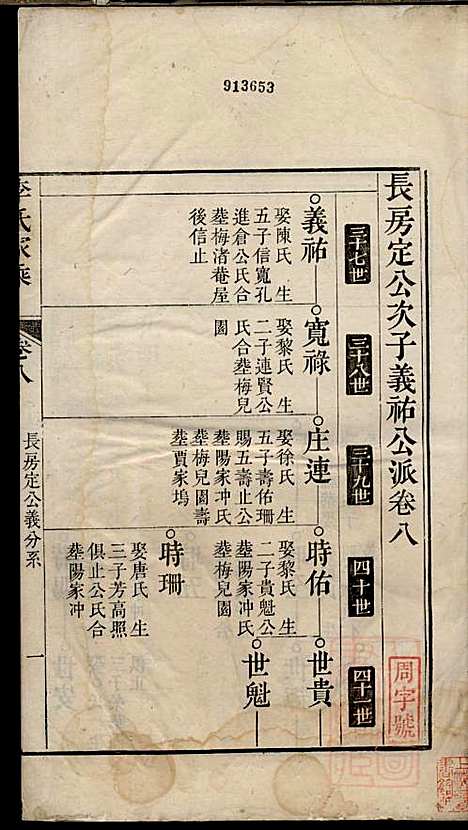 913653
長房定公次子義祐公派卷八
三十七世
三十八世
三十九世
四十世
四十一世
周字號
義祐
娶陳氏 生
五子信寬孔
進倉公氏合
塟梅渚菴屋
後信止
寬祿
娶黎氏 生
二子連賢公
氏合塟梅兒
園
庄連
娶徐氏 生
五子壽佑珊
賜五壽止公
塟陽家冲氏
塟梅兒園壽
塟賈家塢
時佑
娶黎氏 生
二子貴魁公
塟陽家冲氏
塟梅兒園
世貴
世魁
時珊
娶唐氏 生
三子芳高照
俱止公氏合
塟陽家冲
氏家乘
卷八
長房定公義分系
一